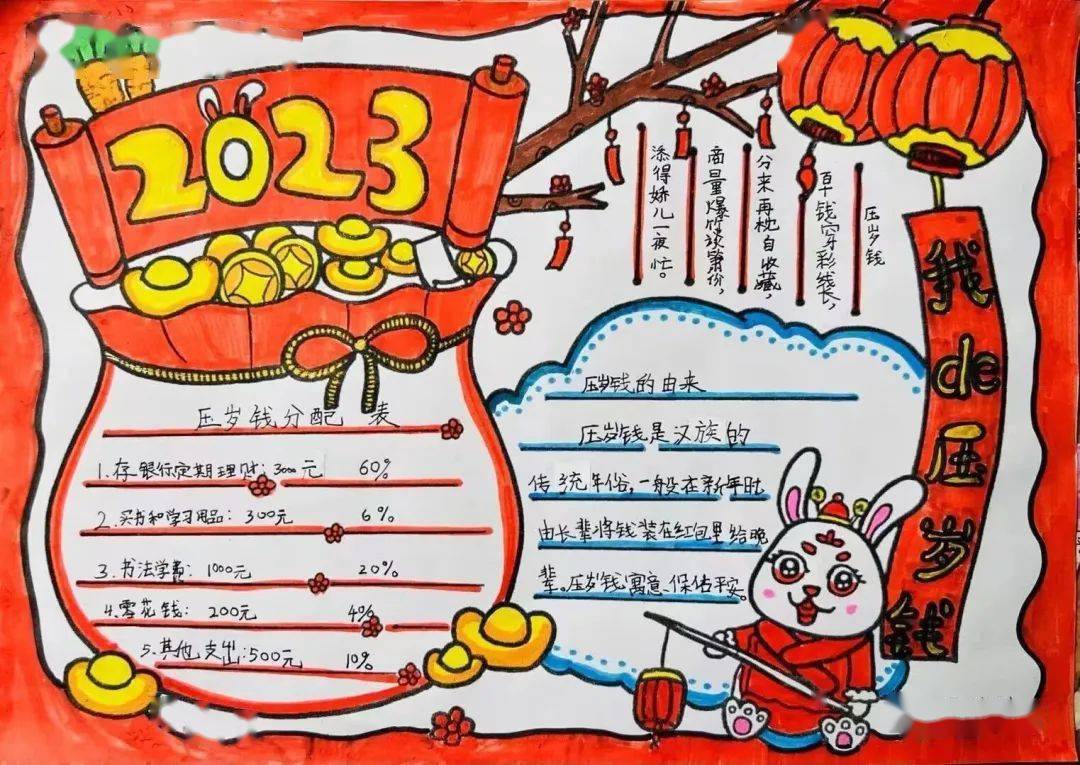 2023
压岁钱
百十钱穿彩线长，
分来再枕自收藏，
商量爆竹谈箫价，
添得娇儿一夜忙。
我de压岁钱
压岁钱分配表
1.存银行定期理财：3000元 60%
2.买书和学习用品：300元 6%
3.书法学费：1000元 20%
4.零花钱：200元 4%
5.其他支出：500元 10%
压岁钱的由来
压岁钱是汉族的
传统年俗，一般在新年时
由长辈将钱装在红包里给晚
辈。压岁钱寓意、保佑平安。